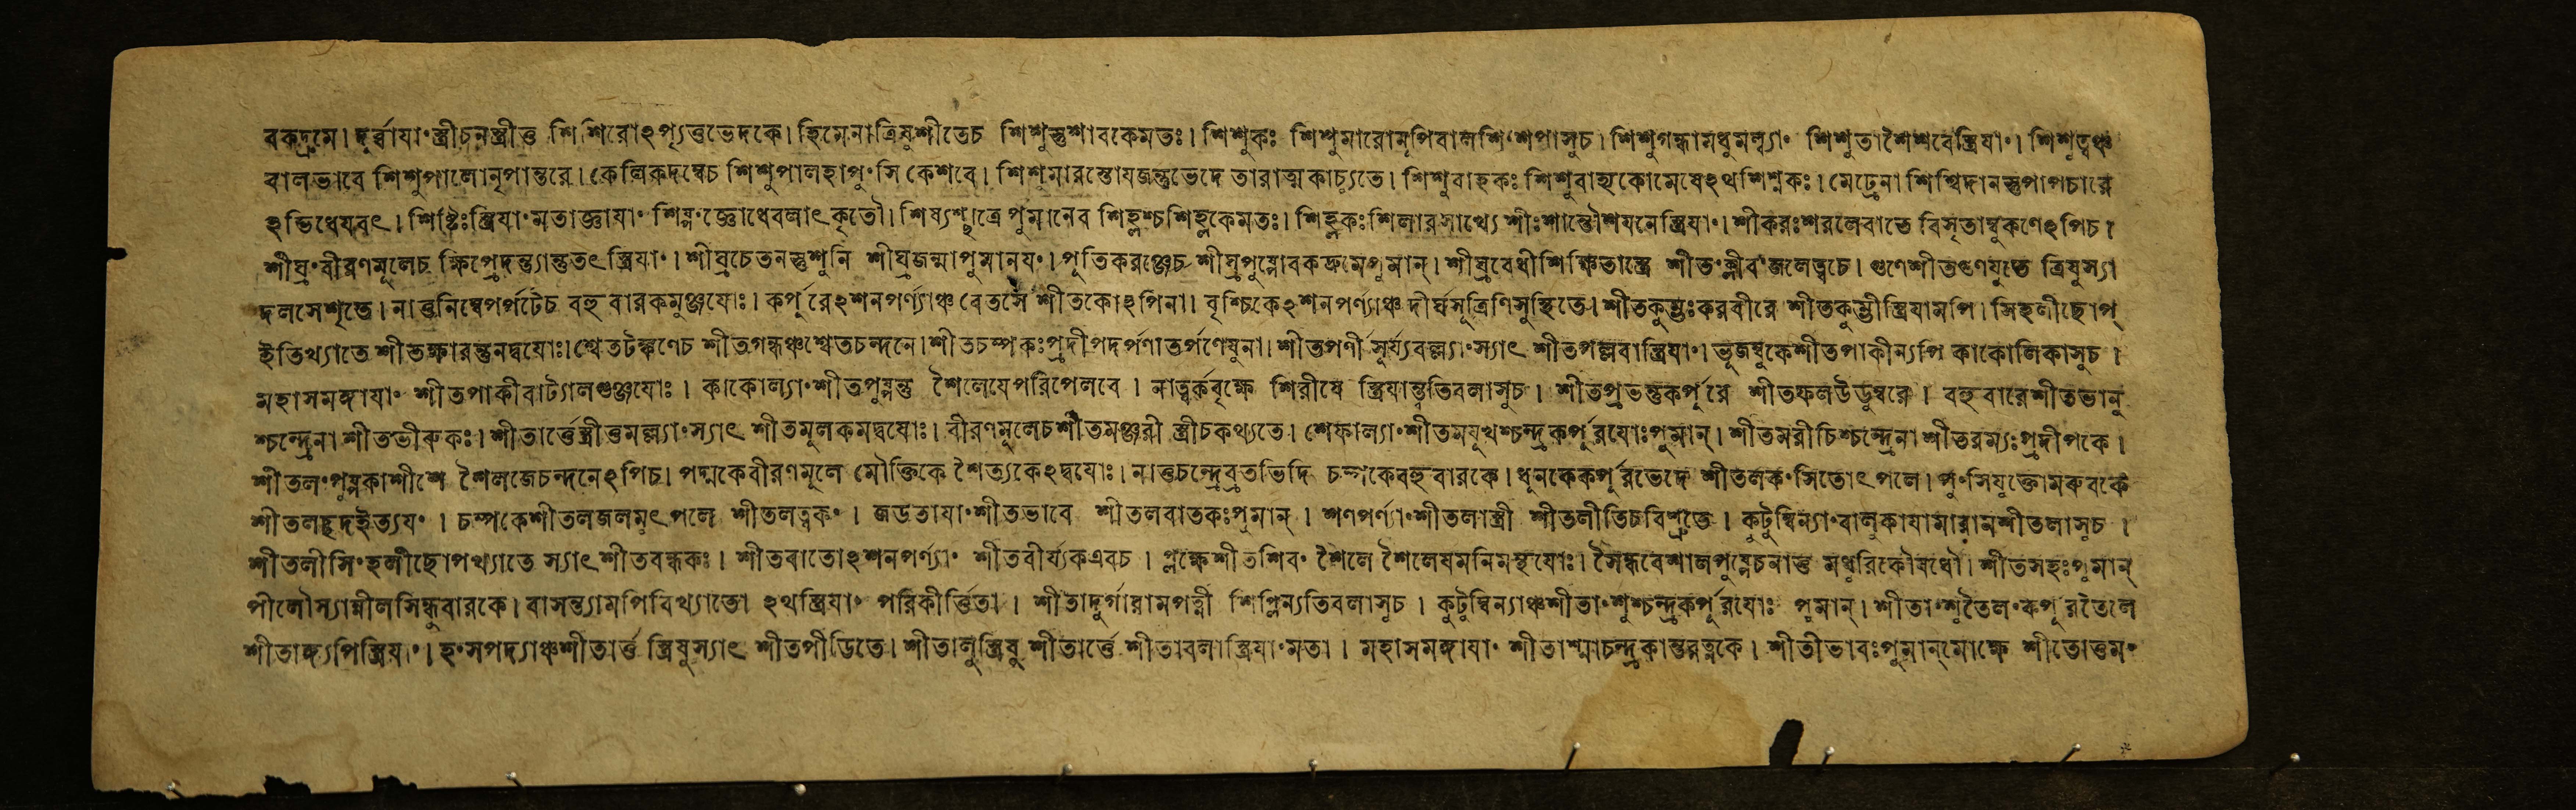 বকদ্রুমে। দুর্ব্বাযা॰স্ত্রীচনস্ত্রীত্তু শিশিরোঽপ্যৃতুভেদকে। হিমেনাত্রিষুশীতেচ শিশুস্তুশাবকেমতঃ। শিশুকঃ শিশুমারোনৃপিবালশি॰শপাসুচ। শিশুগন্ধামধুমল্ল্যা॰ শিশুতাশৈশবেস্ত্রিযা॰। শিশুত্বঞ্চ
বালভাবে শিশুপালোনৃপান্তরে। কেলিকদম্বেচ শিশুপালহাপু॰সি কেশবে। শিশুমারস্তোযজন্তুভেদে তারাত্মকাচ্যুতে। শিশুবাহকঃ শিশুবাহ্যকোমেষেঽথশিশ্নকঃ। মেঢ্রেনা শিশ্বিদানস্তুপাপচারে
ঽভিধেযবৎ। শিষ্টিঃস্ত্রিযা॰মতাজ্ঞাযা॰ শিষ্ন॰জ্ঞোধেবলাৎকৃতৌ। শিষ্যশ্ছাত্রে পুমানেব শিহ্লশ্চশিহ্লকেমতঃ। শিহ্লকঃশিলারসাখ্যে শীঃশান্তৌশযনেস্ত্রিযা॰। শীকরঃশরলেবাতে বিসৃতাম্বুকণেঽপিচ।
শীঘ্র॰বীরণমূলেচ ক্ষিপ্রেদন্ত্যান্তুতৎস্ত্রিযা॰। শীঘ্রচেতনস্তুশুনি শীঘ্রজন্মাপুমানয॰। পূতিকরঞ্জেচ শীঘ্রপুষ্পোবকদ্রুমেপুমান্। শীঘ্রবেধীশিক্ষিতাস্ত্রে শীত॰ক্লীব॰জলেত্বচে। গুণেশীতগুণযুতে ত্রিষুস্যা
দলসেশৃতে। নাতুনিম্বেপর্পটেচ বহুবারকমুঞ্জযোঃ। কর্পূরেঽশনপর্ণ্যাঞ্চ বেতসে শীতকোঽপিনা। বৃশ্চিকেঽশনপর্ণ্যাঞ্চ দীর্ঘসূত্রিণিসুস্থিতে। শীতকুম্ভঃকরবীরে শীতকুম্ভীস্ত্রিযামপি। সিহলীছোপ্
ইতিখ্যাতে শীতক্ষারস্তুনদ্বযোঃ। শ্বেতটঙ্কণেচ শীতগন্ধঞ্চশ্বেতচন্দনে। শীতচম্পকঃপ্রদীপদর্পণাতর্পণেষুনা। শীতপর্ণী সূর্য্যবল্ল্যা॰স্যাৎ শীতপল্লবাস্ত্রিযা॰। ভূজম্বুকেশীতপাকীন্যপি কাকোলিকাসুচ।
মহাসমঙ্গাযা॰ শীতপাকীবাট্যালগুঞ্জযোঃ। কাকোল্যা॰শীতপুষ্পন্তু শৈলেযেপরিপেলবে। নাত্বর্কবৃক্ষে শিরীষে স্ত্রিযান্ত্বতিবলাসুচ। শীতপ্রভস্তুকর্পূরে শীতফলউডুম্বরে। বহুবারেশীতভানু
শ্চন্দ্রেনা শীতভীরুকঃ। শীতার্ত্তেস্ত্রীত্তুমল্ল্যা॰স্যাৎ শীতমূলকমদ্বযোঃ। বীরণমূলেচশীতমঞ্জরী স্ত্রীচকথ্যতে। শেফাল্যা॰শীতমযূখশ্চন্দ্রকর্পূরযোঃপুমান্। শীতমরীচিশ্চন্দ্রেনা শীতরম্যঃপ্রদীপকে।
শীতল॰পুষ্পকাশীশে শৈলজেচন্দনেঽপিচ। পদ্মকেবীরণমূলে মৌক্তিকে শৈত্যকেঽদ্বযোঃ। নাতুচন্দ্রেব্রতভিদি চম্পকেবহুবারকে। ধুনককেকর্পূরভেদে শীতলক॰সিতোৎপলে। পু॰সিযুক্তোমরুবকে
শীতলচ্ছদইত্যয॰। চম্পকেশীতলজলমুৎপলে শীতলত্বক॰। জডতাযা॰শীতভাবে শীতলবাতকঃপুমান্। শণপর্ণ্যা॰শীতলাস্ত্রী শীতলীতিচবিশ্রুতে। কুটুম্বিন্যা॰বালুকাযামারামশীতলাসুচ।
শীতলীসি॰হলীছোপখ্যাতে স্যাৎশীতবল্ককঃ। শীতবাতোঽশনপর্ণ্যা॰ শীতবীর্য্যকএবচ। প্লক্ষেশীতশিব॰ শৈলে শৈলেযমনিমন্থযোঃ। সৈন্ধবেশালপুষ্পেচনাতু মধুরিকৌষধৌ। শীতসহঃপুমান্
পীলৌস্যান্নীলসিন্ধুবারকে। বাসন্ত্যামপিবিখ্যাতো ঽথস্ত্রিযা॰ পরিকীর্ত্তিতা। শীতাদুর্গারামপত্নী শিল্পিন্যতিবলাসুচ। কুটুম্বিন্যাঞ্চশীতা॰শুশ্চন্দ্রকর্পূরযোঃ পুমান্। শীতা॰শুতৈল॰কর্পূরতৈলে
শীতাঙ্গ্যপিস্ত্রিযা॰। হ॰সপদ্যাঞ্চশীতার্ত্ত স্ত্রিষুস্যাৎ শীতপীডিতে। শীতালুস্ত্রিষু শীতার্ত্তে শীতাবলাস্ত্রিযা॰মতা। মহাসমঙ্গাযা॰ শীতাশ্মাচন্দ্রকান্তরত্নকে। শীতীভাবঃপুমান্মোক্ষে শীতোত্তম॰